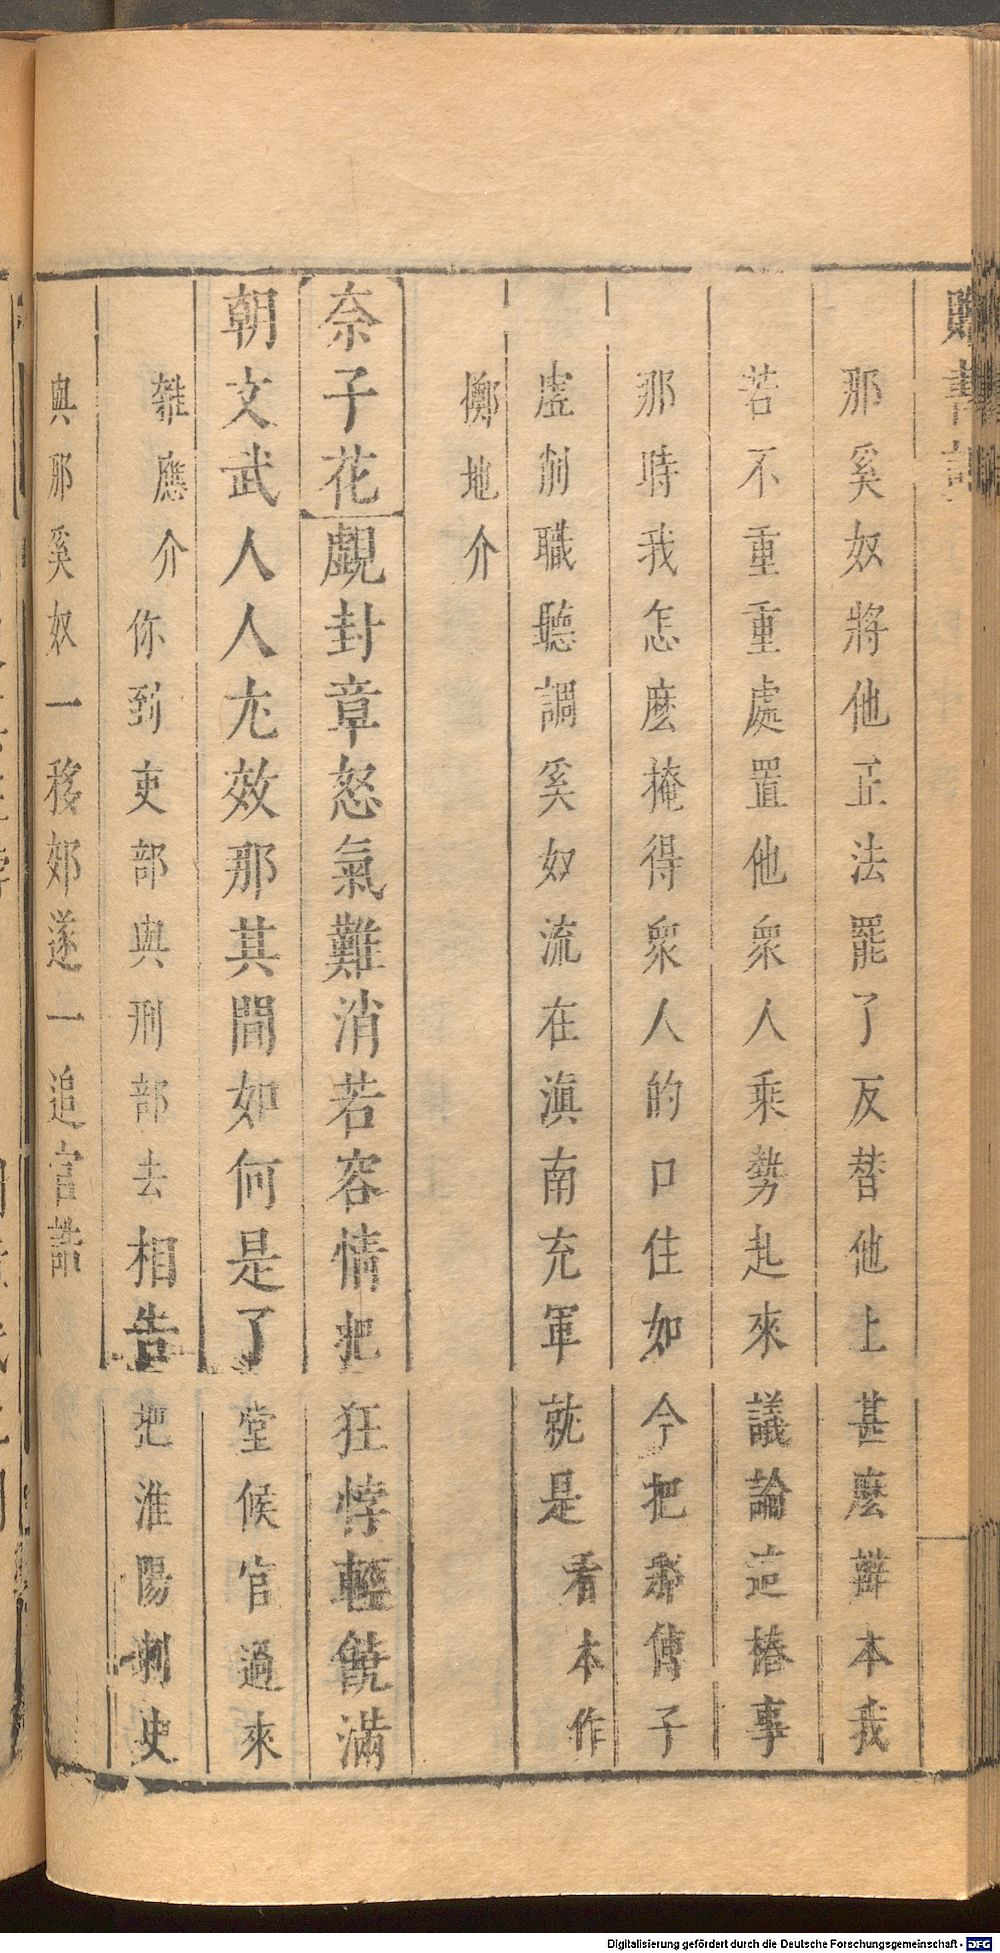 那奚奴將他正法罷了反替他上甚麽辯本我
若不重重處置他衆人乘勢起來議論這樁事
那時我怎麽掩得衆人的口住如今把那傅子
虛削職聽調奚奴流在滇南充軍就是看本作
擲地介
奈子花覷封章怒氣難消若容情把狂悖輕饒滿
朝文武人人尤效那其間如何是了堂候官過來
雜應介你到吏部與刑部去相告把淮陽刺史
與那奚奴一移郊遂一追官誥
Digitalisierung gefördert durch die Deutsche Forschungsgemeinschaft - DFG